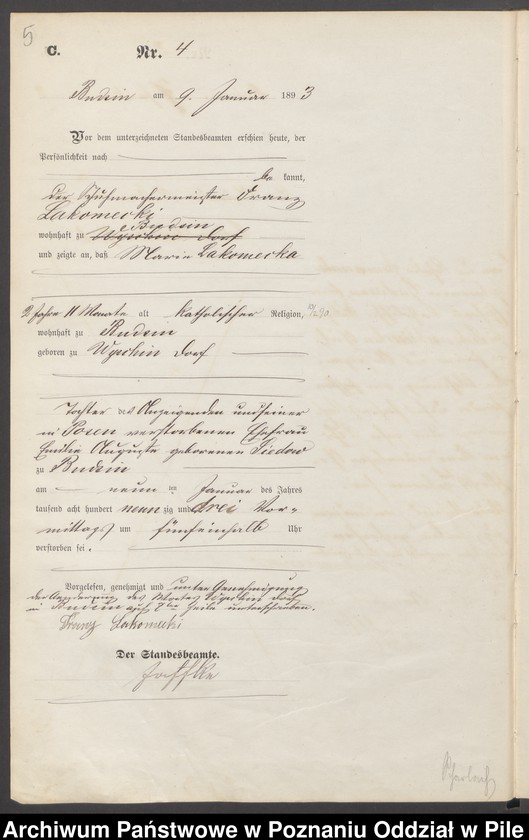 5
C. Nr. 4
Budsin am 9. Januar 1893
Vor dem unterzeichneten Standesbeamten erschien heute, der
Persönlichkeit nach
be kannt,
der Schuhmachermeister Franz
Lakomecki
Budsin
wohnhaft zu Wyschin Dorf
und zeigte an, daß Maria Lakomecka
2 Jahre 11 Monate alt katholischer Religion,
wohnhaft zu Budsin
geboren zu Wyschin Dorf
Tochter des Anzeigenden und seiner
in Posen verstorbenen Ehefrau
Emilie Auguste geborenen
zu Budsin
am neun ten Januar des Jahres
tausend acht hundert neunzig und drei Vor-
mittags um fünfeinhalb Uhr
verstorben sei.
Vorgelesen, genehmigt und unter Genehmigung
der Aenderung des Wortes Wyschin Dorf
in Budsin auf 7ter Zeile unterschrieben.
Franz Lakomecki
Der Standesbeamte.
Archiwum Państwowe w Poznaniu Oddział w Pile